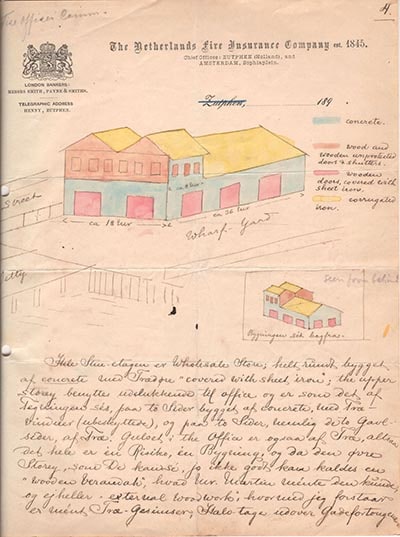 Fire Offices Comm.
4.
The Netherlands Fire Insurance Company est. 1845.
Chief Offices: ZUTPHEN (Holland), and
AMSTERDAM, Sophiaplein.
LONDON BANKERS:
MESSRS SMITH, PAYNE & SMITHS.
TELEGRAPHIC ADDRESS
HENNY, ZUTPHEN.
Zutphen, 189
concrete.
wood and
wooden unprotected
doors & shutters.
wooden
doors, covered with
sheet irons.
corrugated
iron.
Street
ca 18
ca 8
ca 26
Wharf-Yard
Jetty
seen from behind
Bygningen set bagfra.
Hele Stue-etagen er Wholesale Store; helt rundt bygget
af concrete med Trædøre "covered with sheet iron; the upper
Storey benyttes udelukkende til office og er som det af
Tegningen ses, paa to Sider bygget af concrete, med Træ-
vinduer (ubeskyttede), og paa to Sider, nemlig de to Gavl-
sider, af Træ. Gulvet i the Office er ogsaa af Træ, altsaa
det hele er én Risico, én Bygning, og da den øvre
Storey, som De kan se, jo ikke godt kan kaldes en
"wooden Verandah", hvad Mr. Martin mente den kunde,
og ejheller - external woodwork; hvormed jeg forstaar
er ment Træ Gesimser, Halvtage udover Gadefortouge